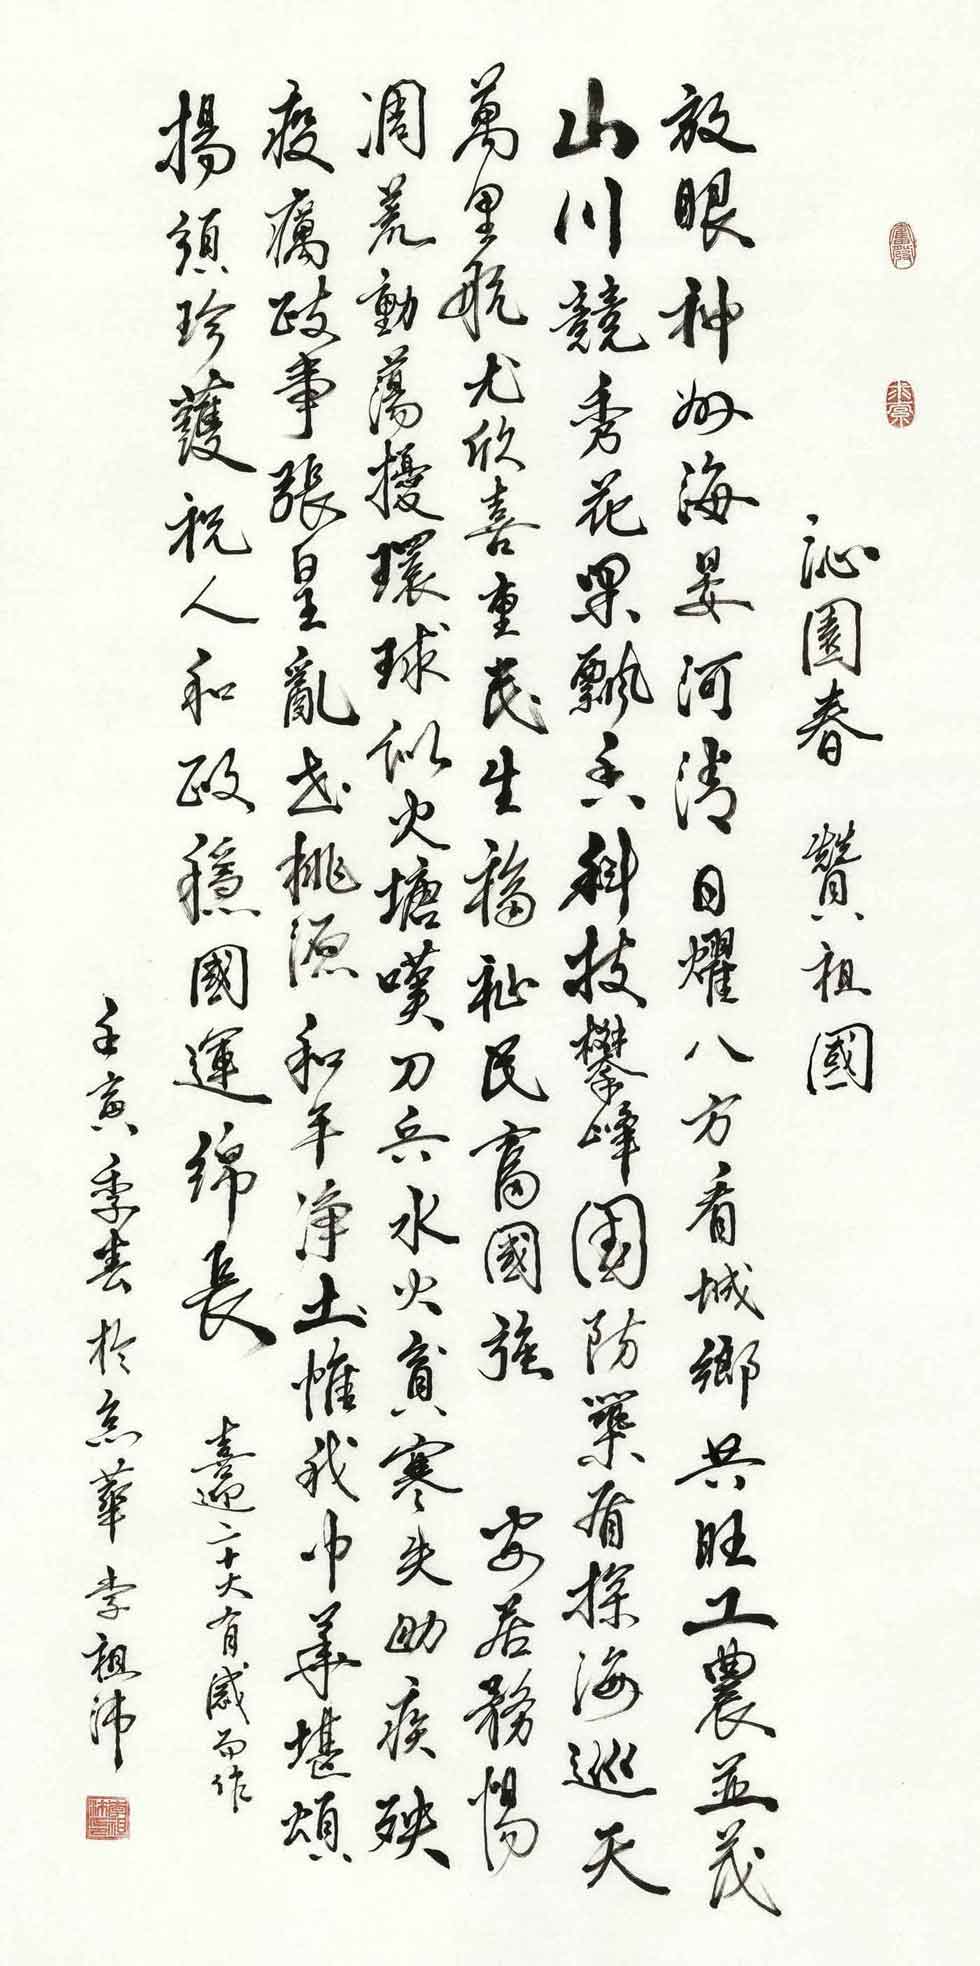 沁園春 贊祖國
放眼神州海晏河清日耀八方看城鄉共旺工農並茂
山川競秀花果飄香科技攀峰國防築盾探海巡天
萬里航尤欣喜重民生福祉民富國強 安居務惕
凋荒動蕩擾環球似火塘嘆刀兵水火貧寒失助疾殃
疫癘政事張皇亂世桃源和平淨土惟我中華堪頌
揚須珍護祝人和政穩國運綿長
喜迎二十大有感而作
壬寅季春於京華李祖沛